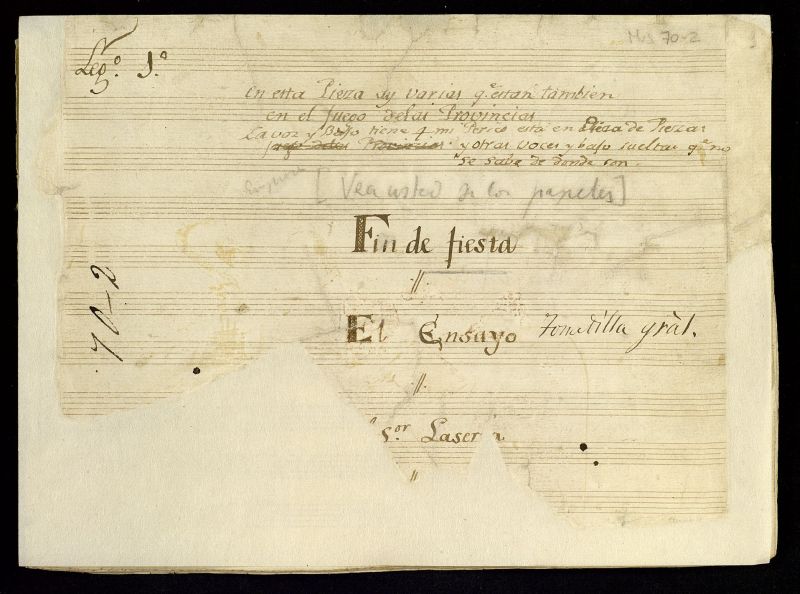 Mus 70-2
1
Leg.º 1.º
en esta Pieza ay varias q.e estan tambien
en el Juego delas Provincias
La voz y Bajo tiene 4 mi Perico esta en Pieza de Piezas
Juego delas Provincias y otras voces y bajo sueltas q.e no
se sabe de donde son.
[Vea usted si los papeles]
Fin de fiesta
70-2
El Ensayo Tonadilla gräl.
S.or Laserna